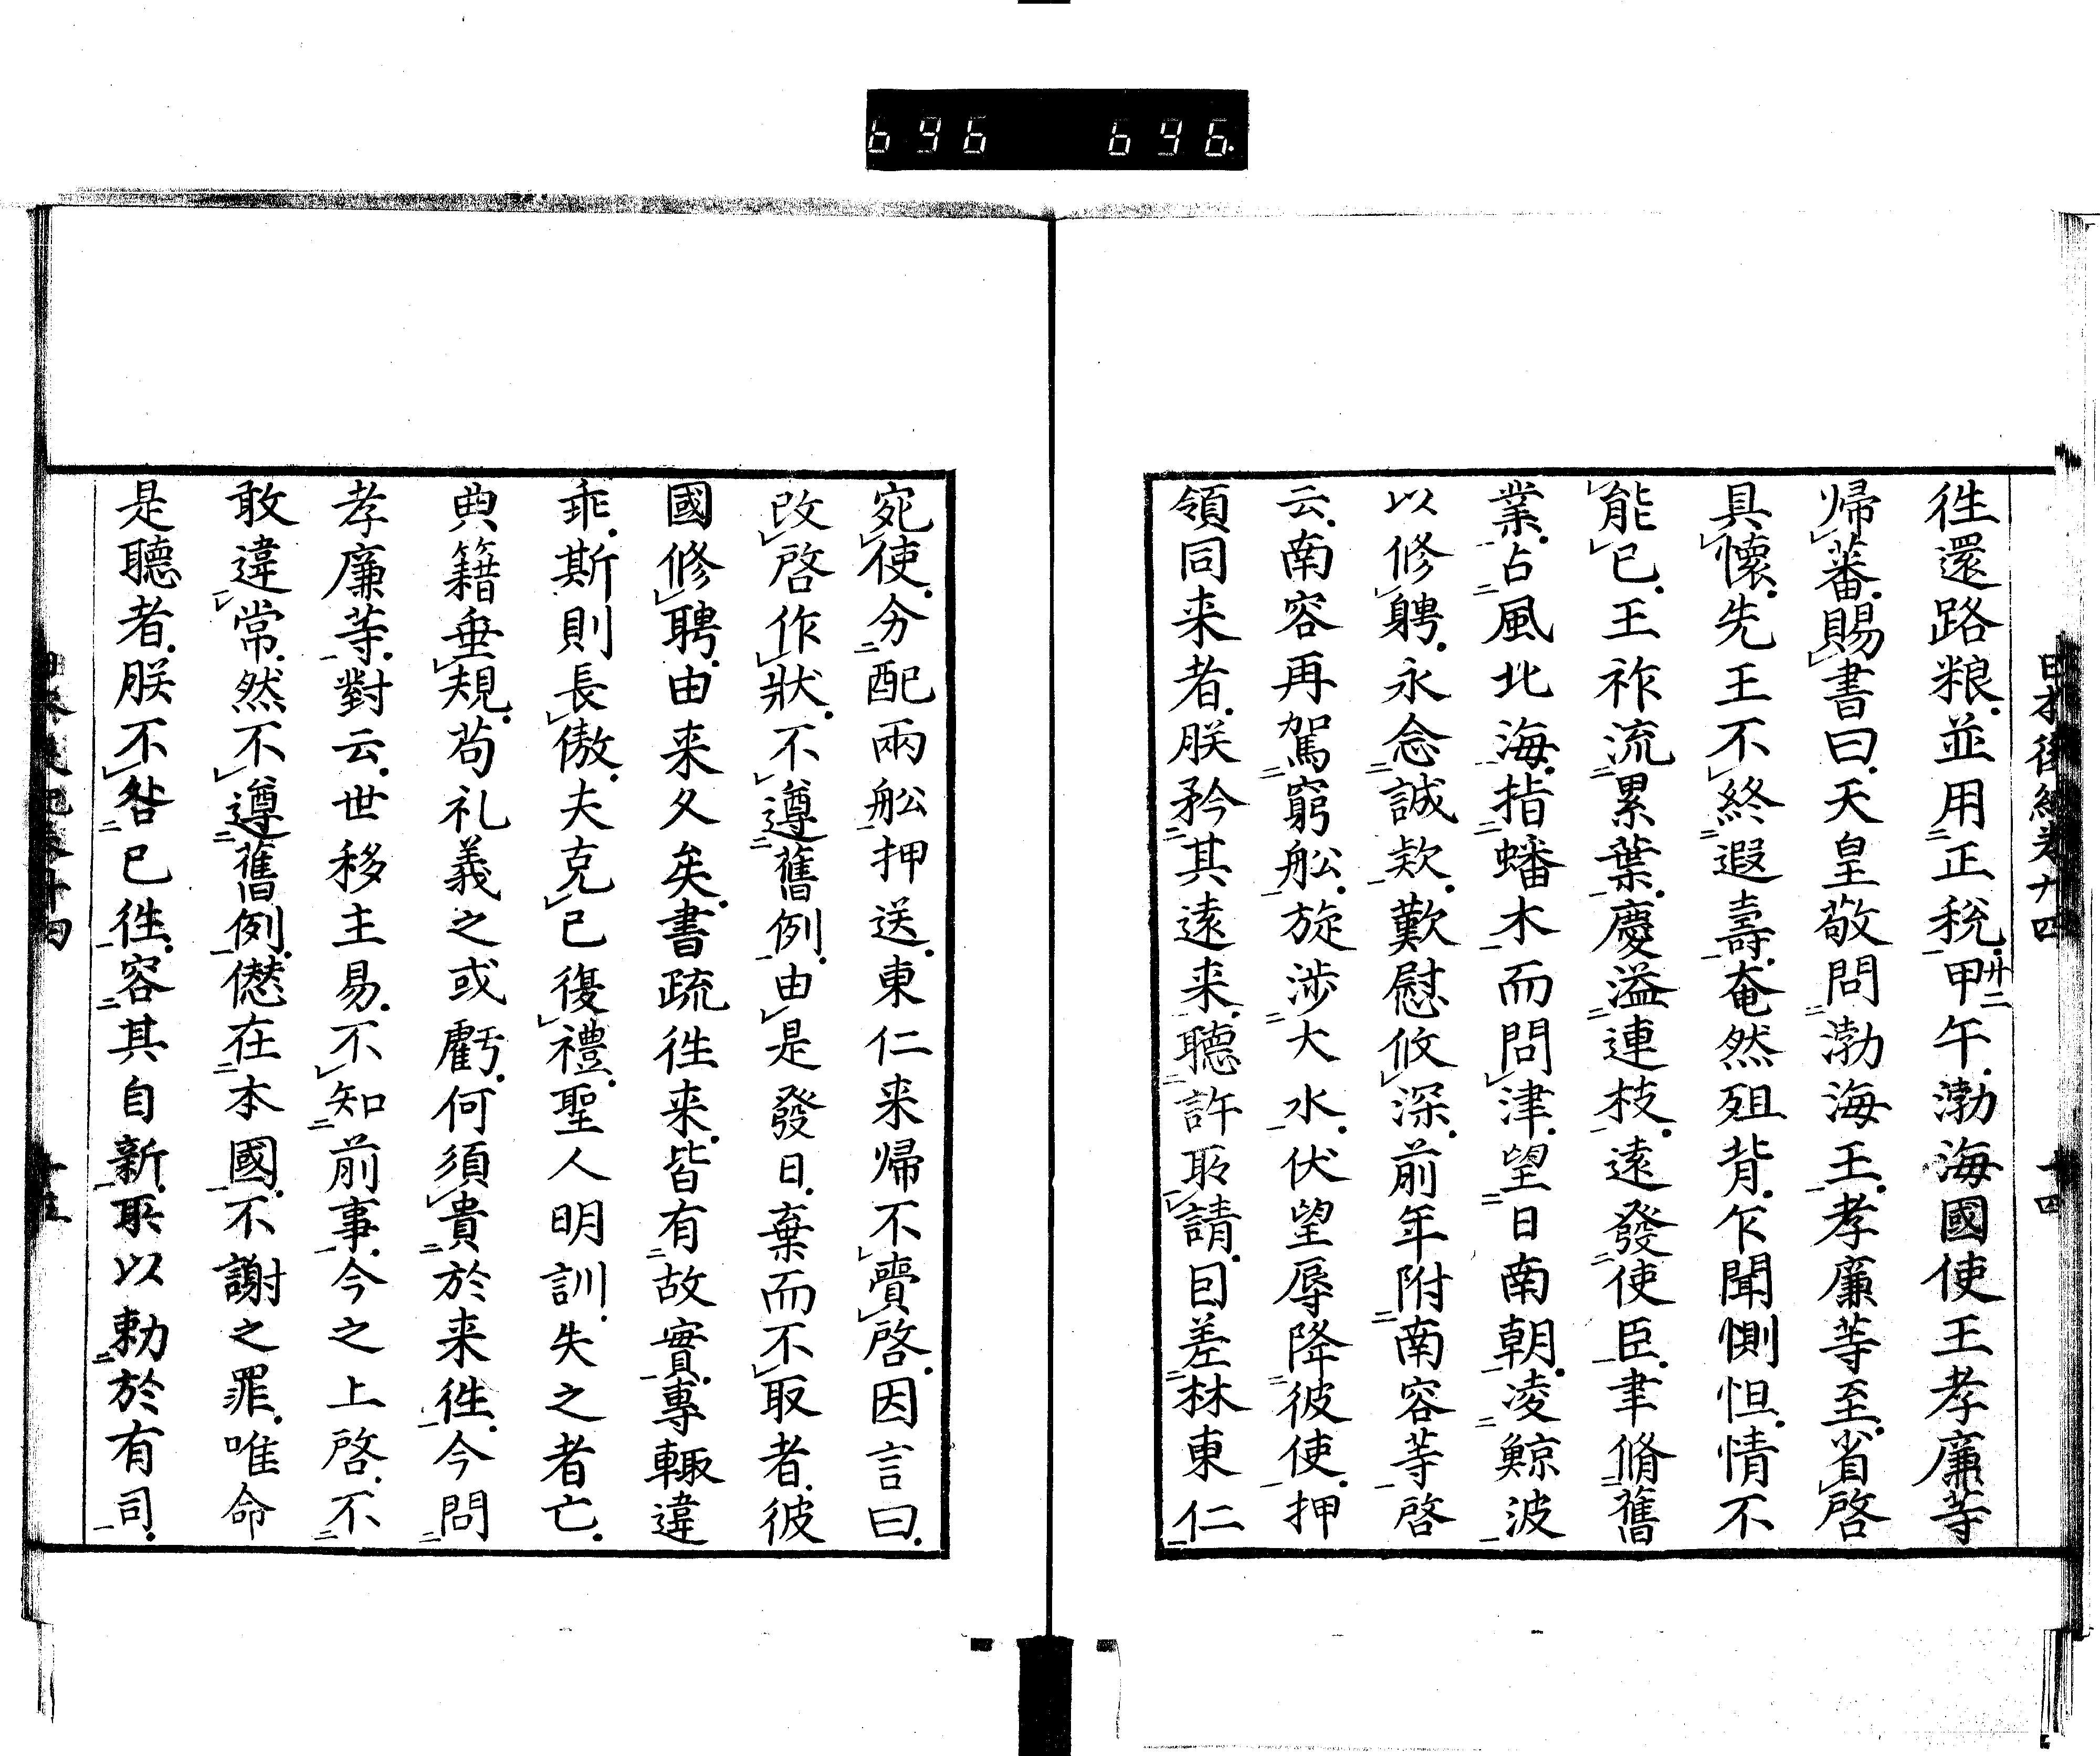 696 696.
往還路粮並用正税甲午渤海國使王孝廉等
廿二
帰蕃賜書曰天皇敬問渤海王孝廉等至省啓
具懐先王不終遐壽奄然殂背乍聞惻怛情不
能已王祚流累葉慶溢連枝遠發使臣聿脩舊
業占風北海指蟠木而問津望日南朝凌鯨波
以修聘永念誠款歎慰攸深前年附南容等啓
云南容再駕窮舩旋渉大水伏望辱降彼使押
領同来者朕矜其遠来聽許取請因差林東仁
宛使分配兩舩押送東仁来帰不賷啓因言曰
改啓作状不遵舊例由是發日棄而不取者彼
國修聘由来久矣書疏往来皆有故實專輙違
乖斯則長傲夫克已復禮聖人明訓失之者亡
典籍垂規苟礼義之或虧何須貴於来往今問
孝廉等對云世移主易不知前事今之上啓不
敢違常然不遵舊例僽在本國不謝之罪唯命
是聽者朕不咎已往容其自新取以勅於有司